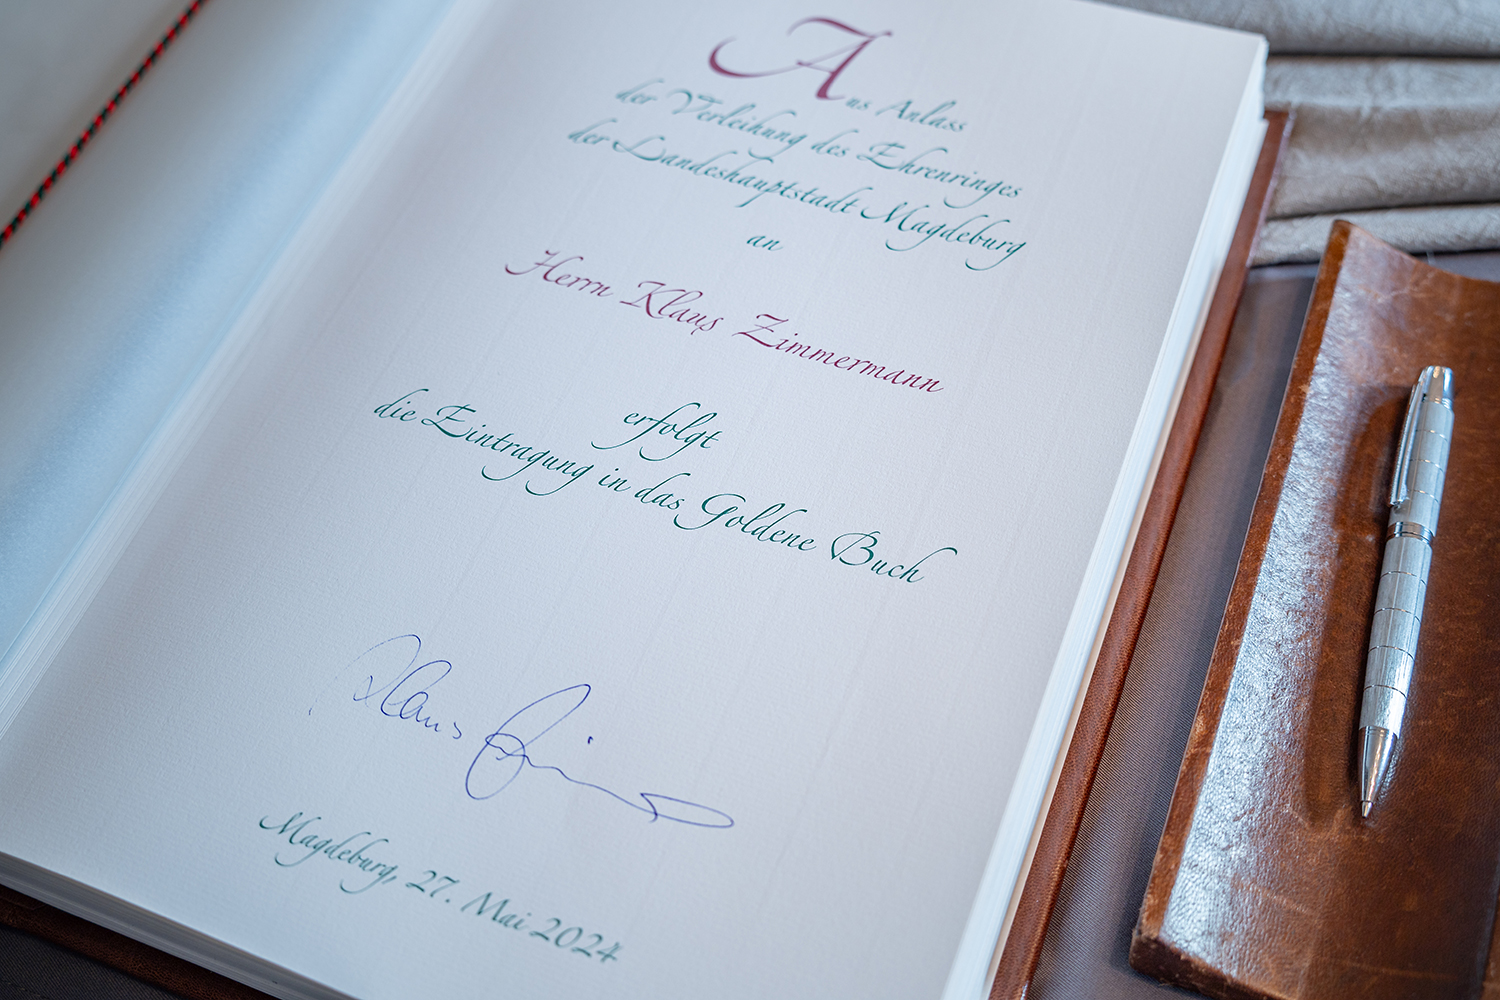 Aus Anlass
der Verleihung des Ehrenringes
der Landeshauptstadt Magdeburg
an
Herrn Klaus Zimmermann
erfolgt
die Eintragung in das Goldene Buch
Klaus
Magdeburg, 27. Mai 2024